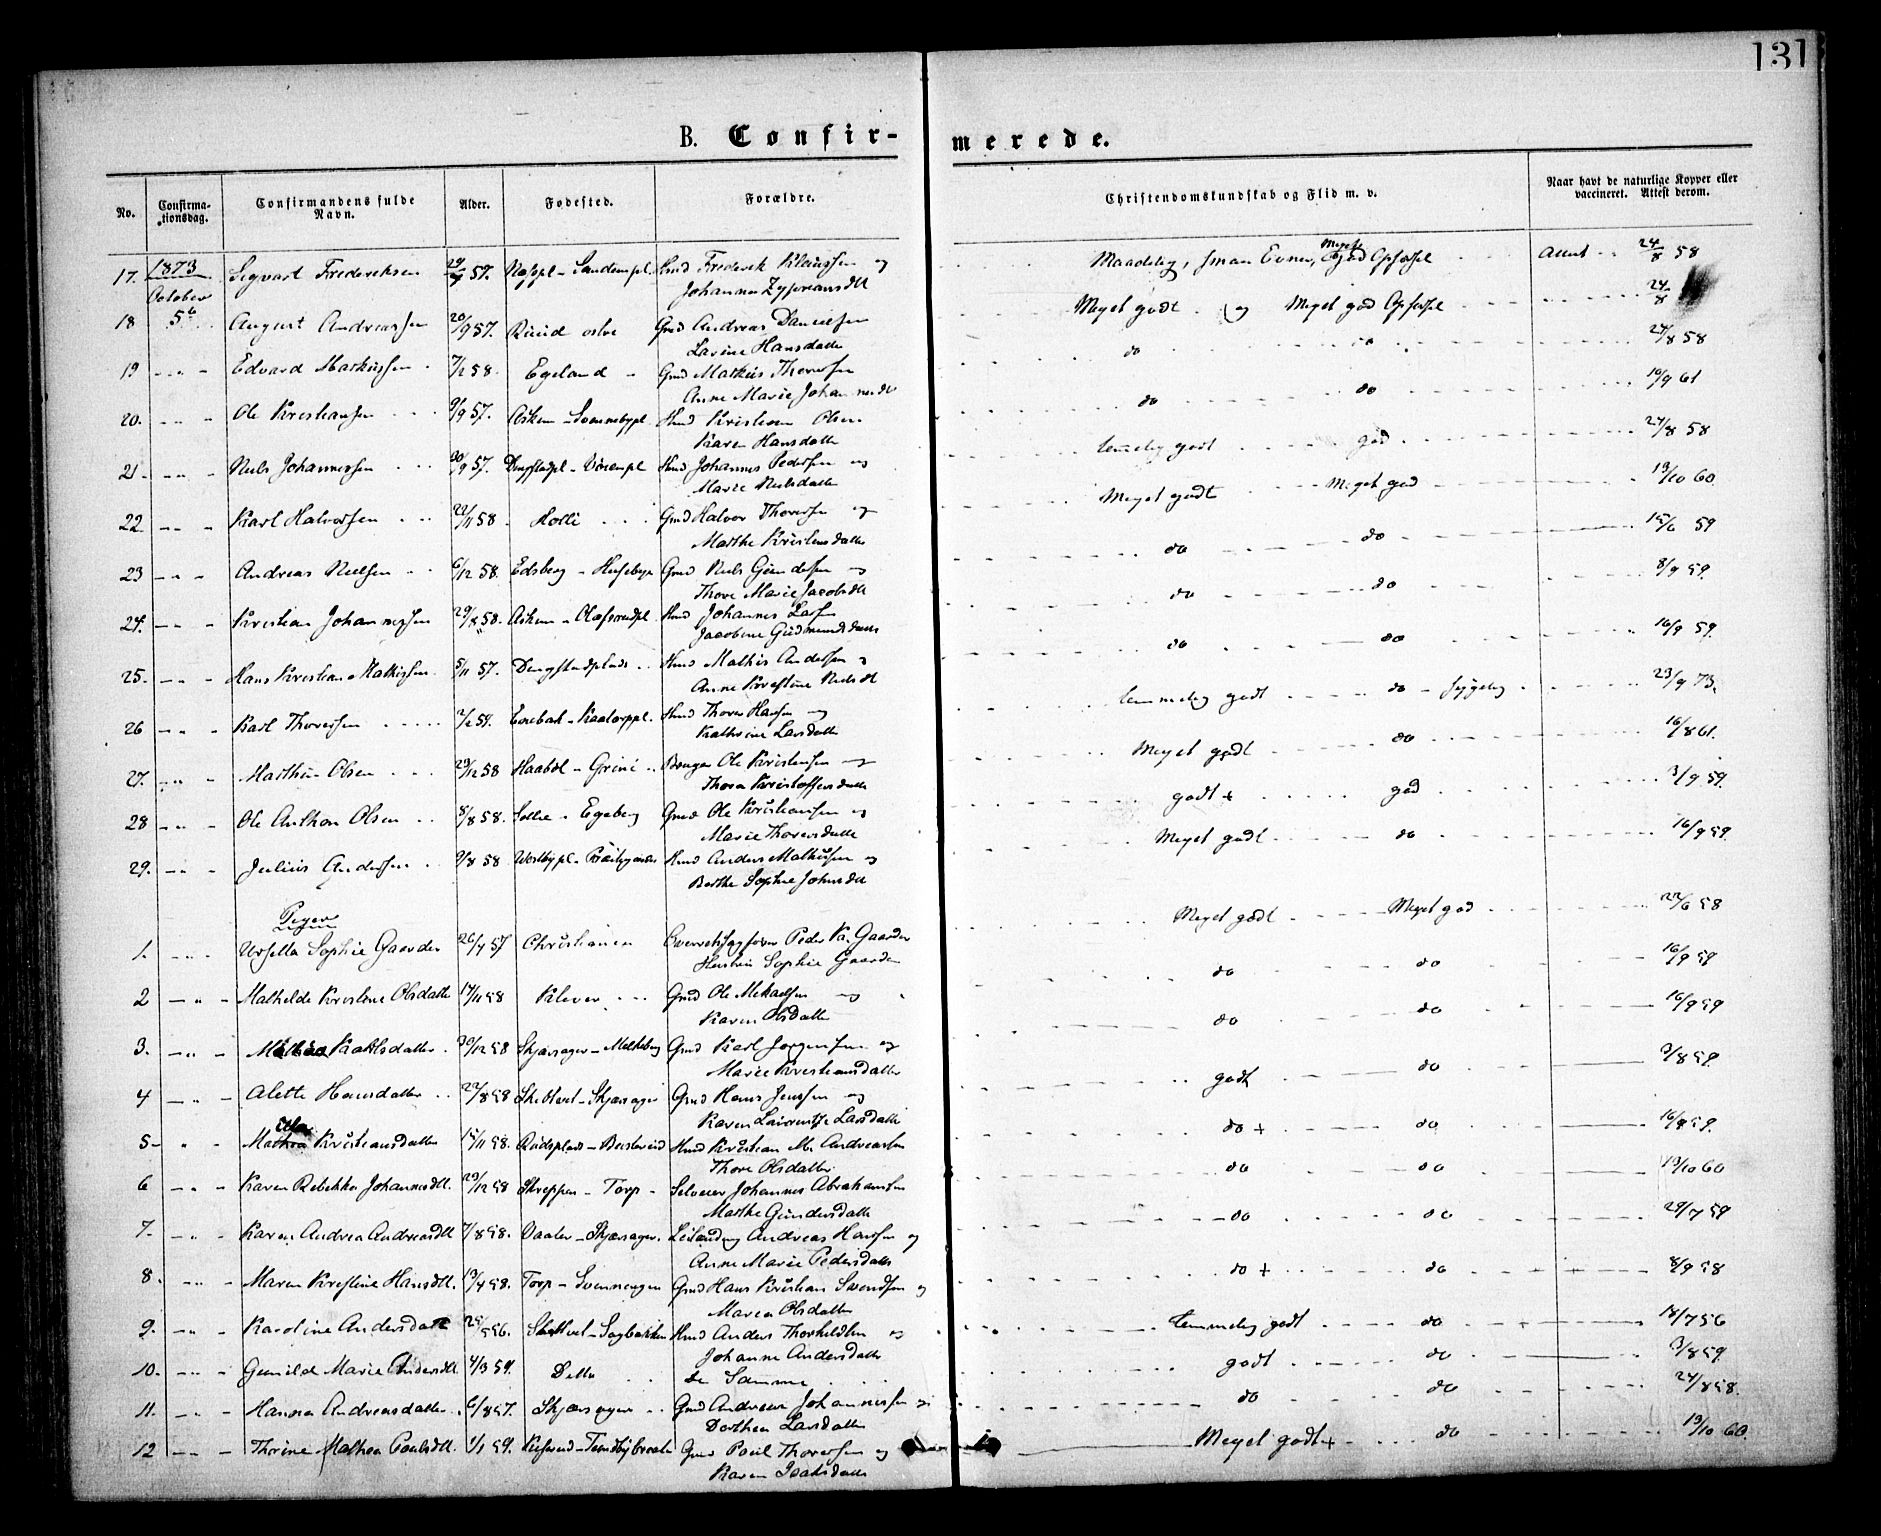 131
B. Confir- merede.
No. Confirma-tionsdag. Confirmandens fulde Navn. Alder. Fødested. Forældre. Christendomskundskab og Flid m. v. Naar havt de naturlige Kopper eller vaccineret. Attest derom.
1873
October
5
17. Sigvart Frederiksen 57. Husmd Frederik og Maadelig, smaa Evner, Meget god Opførsel Attest 24/8 58
Johanne
18 August Andreassen 20/9 57. Ruud østre Gmd Andreas Danielsen Meget godt og Meget god Opførsel 24/8
Larine Hansdatter
19 Edvard Markussen 7/2 58. Egeland Gmd Markus Thoresen do do 24/8 58
Anne Marie Johannesdtr
20. Ole Kristiansen 9/9 57. Askim - Svennebypl. Hmd Kristian Olsen do do 10/9 61
Karen Hansdatter
21. Niels Johannessen 30/9 57. Hmd Johannes Pedersen og temmelig godt god 24/8 58
Marie Nielsdatter
22 Karl Halvorsen 22/11 58. Holli Gmd Halvor Thoresen og Meget godt Meget god 13/10 60.
Marthe Kristensdatter
23 Andreas Nielsen 6/12 58. Edsberg - Husebye Gmd Niels Gundersen og do do 15/6 59
Thore Marie Jacobsdtr
24. Kristian Johannessen 29/8 58. Askim - Olafsrudpl. Hmd Johannes Larsen do do 8/9 59.
Jacobine Gudmundsdatter
25. Hans Kristian Mathissen 5/11 57. Dingstadplads Hmd Mathis Andersen og do do 16/9 59.
Anne Kristine Nielsdtr
26 Karl Thoresen 2/2 59. Evebak - Kaatorppl. Hmd Thorer Hansen og temmelig godt do - sygelig 23/9 73.
Kathrine Larsdatter
27. Marthin Olsen 29/12 58 Haabøl - Grini Bruger Ole Kristensen og Meget godt do 16/8 61.
Thora Kristoffersdatter
28 Ole Anthon Olsen 8/8 58. Sollie - Egeberg Gmd Ole Kristiansen og godt + god 3/9 59.
Marie Thoresdatter
29. Julius Andersen 9/8 58 Hmd Anders Mathisen og Meget godt do 16/9 59.
Berthe Sophie Johnsdtr
Piger
1. Ursella Sophie Gaarder 26/7 57 Christiania Overretssagfører Peder Kr. Gaarder Meget godt Meget god 22/6 58
Hustru Sophie Gaarder
2 Mathilde Kristine Olsdatter 14/11 58 Klever Gmd Ole Mikaelsen og do do 16/9 59
Karen Olsdatter
3. Karlsdatter 30/12 58 Skjørsager - Melleberg Gmd Karl Jørgensen og do do 16/9 59
Marie Kristiansdatter
4 Alette Hansdatter 22/8 58 Sketlvet - Skjørsager Gmd Hans Jensen og godt do 3/8 59.
Karen Laurentze Larsdatter
5 Kristiansdatter 15/11 58. Rudsplads - Hmd Kristian M. Andreassen do + do 16/8 59.
Thore Olsdatter
6 Karen Rebekka Johannesdtr. 29/12 58 Skreppen - Torp Selveier Johannes Abrahamsen do do 13/10 60
Marthe Gundersdatter
7. Karen Andrea Andreasdtr 7/8 58. Vaaler - Skjørsager. Leilænding Andreas Hansen og do do 29/7 59
Anne Marie Pedersdatter
8. Maren Kristine Hansdtr. 13/4 58. Torp - Svennengen Gmd Hans Kristian Svendsen og do + do 8/9 58
Maren Olsdatter
9. Karoline Andersdatter 56. - Sagbakken Hmd Anders og temmelig godt do 18/7 56
Johanne Andersdatter
10. Gunilde Marie Andersdtr 4/3 59. Ditto De Samme godt do 3/8 59
11. Hanna Andreasdatter 6/8 57. Skjørsager Gmd Andreas Johannessen og do do 24/8 58.
Dorthea Larsdatter
12 Thrine Mathea Paulsdtr. 1/1 59. Gmd Paul Thoresen og Meget godt + do 13/10 60.
Karen Isaksdatter